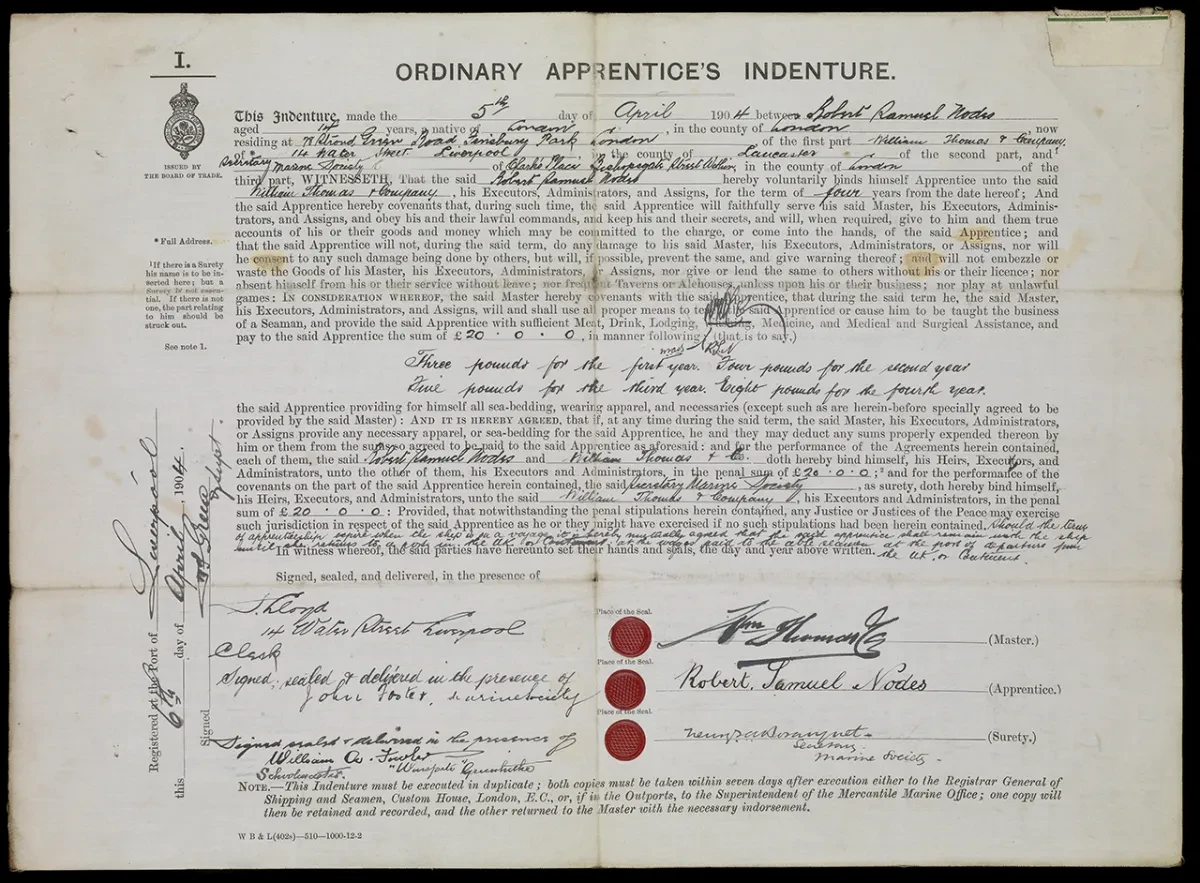 I.
ORDINARY APPRENTICE'S INDENTURE.
ISSUED BY
THE BOARD OF TRADE.
This Indenture, made the 5th day of April 1904 between Robert Samuel Nodes
aged years, a native of London, in the county of London, now
residing at Road Finsbury Park London of the first part William Thomas & Company
of * 14 Water Street Liverpool in the county of Lancaster of the second part, and ¹
Secretary Marine Society of Clarks Place Bishopsgate Street Within, in the county of London of the
third part, WITNESSETH, That the said Robert Samuel Nodes hereby voluntarily binds himself Apprentice unto the said
William Thomas & Company, his Executors, Administrators, and Assigns, for the term of four years from the date hereof; And
the said Apprentice hereby covenants that, during such time, the said Apprentice will faithfully serve his said Master, his Executors, Adminis-
trators, and Assigns, and obey his and their lawful commands, and keep his and their secrets, and will, when required, give to him and them true
accounts of his or their goods and money which may be committed to the charge, or come into the hands, of the said Apprentice; and
that the said Apprentice will not, during the said term, do any damage to his said Master, his Executors, Administrators, or Assigns, nor will
he consent to any such damage being done by others, but will, if possible, prevent the same, and give warning thereof; and will not embezzle or
waste the Goods of his Master, his Executors, Administrators, or Assigns, nor give or lend the same to others without his or their licence; nor
absent himself from his or their service without leave; nor frequent Taverns or Alehouses, unless upon his or their business; nor play at unlawful
games: IN CONSIDERATION WHEREOF, the said Master hereby covenants with the said Apprentice, that during the said term he, the said Master,
his Executors, Administrators, and Assigns, will and shall use all proper means to teach the said Apprentice or cause him to be taught the business
of a Seaman, and provide the said Apprentice with sufficient Meat, Drink, Lodging, Medicine, and Medical and Surgical Assistance, and
pay to the said Apprentice the sum of £20 . 0 . 0, in manner following (that is to say.)
RSN
Three pounds for the first year. Four pounds for the second year
Five pounds for the third year. Eight pounds for the fourth year.
the said Apprentice providing for himself all sea-bedding, wearing apparel, and necessaries (except such as are herein-before specially agreed to be
provided by the said Master): AND IT IS HEREBY AGREED, that if, at any time during the said term, the said Master, his Executors, Administrators,
or Assigns provide any necessary apparel, or sea-bedding for the said Apprentice, he and they may deduct any sums properly expended thereon by
him or them from the sum so agreed to be paid to the said Apprentice as aforesaid: and for the performance of the Agreements herein contained,
each of them, the said Robert Samuel Nodes and William Thomas & Co doth hereby bind himself, his Heirs, Executors, and
Administrators, unto the other of them, his Executors and Administrators, in the penal sum of £20 . 0 . 0;² and for the performance of the
covenants on the part of the said Apprentice herein contained, the said Secretary Marine Society, as surety, doth hereby bind himself,
his Heirs, Executors, and Administrators, unto the said William Thomas & Company, his Executors and Administrators, in the penal
sum of £20 . 0 . 0: Provided, that notwithstanding the penal stipulations herein contained, any Justice or Justices of the Peace may exercise
such jurisdiction in respect of the said Apprentice as he or they might have exercised if no such stipulations had been herein contained. Should the term
of apprenticeship expire when the ship is on a voyage it is hereby mutually agreed that the said apprentice shall remain with the ship
until she returns to a port in the UK or Continent at the wages paid to the able seamen at the port of departure from
the UK. or Continent.
In witness whereof, the said parties have hereunto set their hands and seals, the day and year above written.
* Full Address.
¹ If there is a Surety
his name is to be in-
serted here; but a
Surety is not essen-
tial. If there is not
one, the part relating
to him should be
struck out.
See note 1.
Signed, sealed, and delivered, in the presence of
J. Lloyd
14 Water Street Liverpool
Clerk
Signed, sealed & delivered in the presence of
John Foster, Marine Society
Signed sealed & delivered in the presence of
William A. Fowler
Schoolmaster "Warspite" Greenhithe
Place of the Seal.
Wm Thomas & Co (Master.)
Place of the Seal.
Robert Samuel Nodes (Apprentice.)
Place of the Seal.
(Surety.)
Secretary
Marine Society.
Registered at the Port of Liverpool
this 6th day of April, 1904.
Signed Green
Supt.
NOTE.—This Indenture must be executed in duplicate; both copies must be taken within seven days after execution either to the Registrar General of
Shipping and Seamen, Custom House, London, E.C., or, if in the Outports, to the Superintendent of the Mercantile Marine Office; one copy will
then be retained and recorded, and the other returned to the Master with the necessary indorsement.
W B & L(402s)—510—1000-12-2